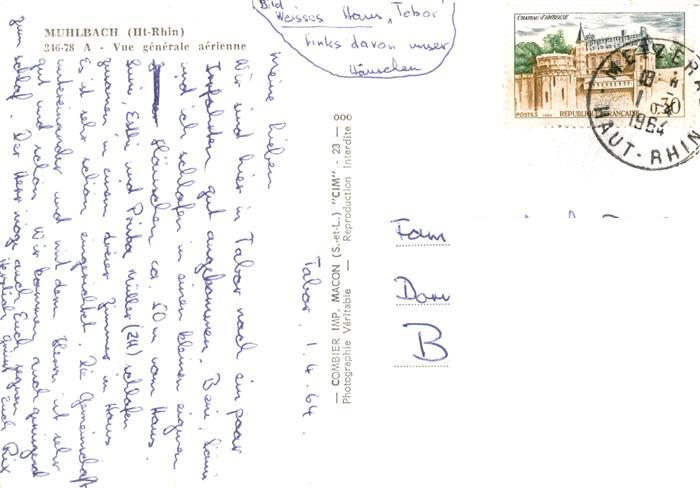 MUHLBACH (Ht-Rhin)
346-78 A - Vue générale aérienne
Bild
Weisses Haus „Tabor"
links davon unser
Häuschen
CHATEAU D'AMBOISE
0,30
POSTES 1963 REPUBLIQUE FRANÇAISE
METZERAL
18 H
1 - 4
1964
HAUT-RHIN
Tabor, 1.4.64.
meine Lieben
Wir sind hier in Tabor nach ein paar
gut angekommen.
und ich schlafen in einem kleinen eigenen
Häuschen ca. 50 m vom Haus.
Esthi und Müller (ZH) schlafen
zusammen in einem dreier Zimmer im Haus
Es ist sehr schön eingerichtet. Die Gemeinschaft
untereinander und mit dem Herrn ist sehr
gut und schön. Wir kommen auch genügend
zum Schlaf. Der Herr möge auch Euch segnen
Herzlich grüsst Euch
— COMBIER IMP. MACON (S.-et-L.) "CIM" — 23 — 000
Photographie Véritable — Reproduction Interdite
Fam
B